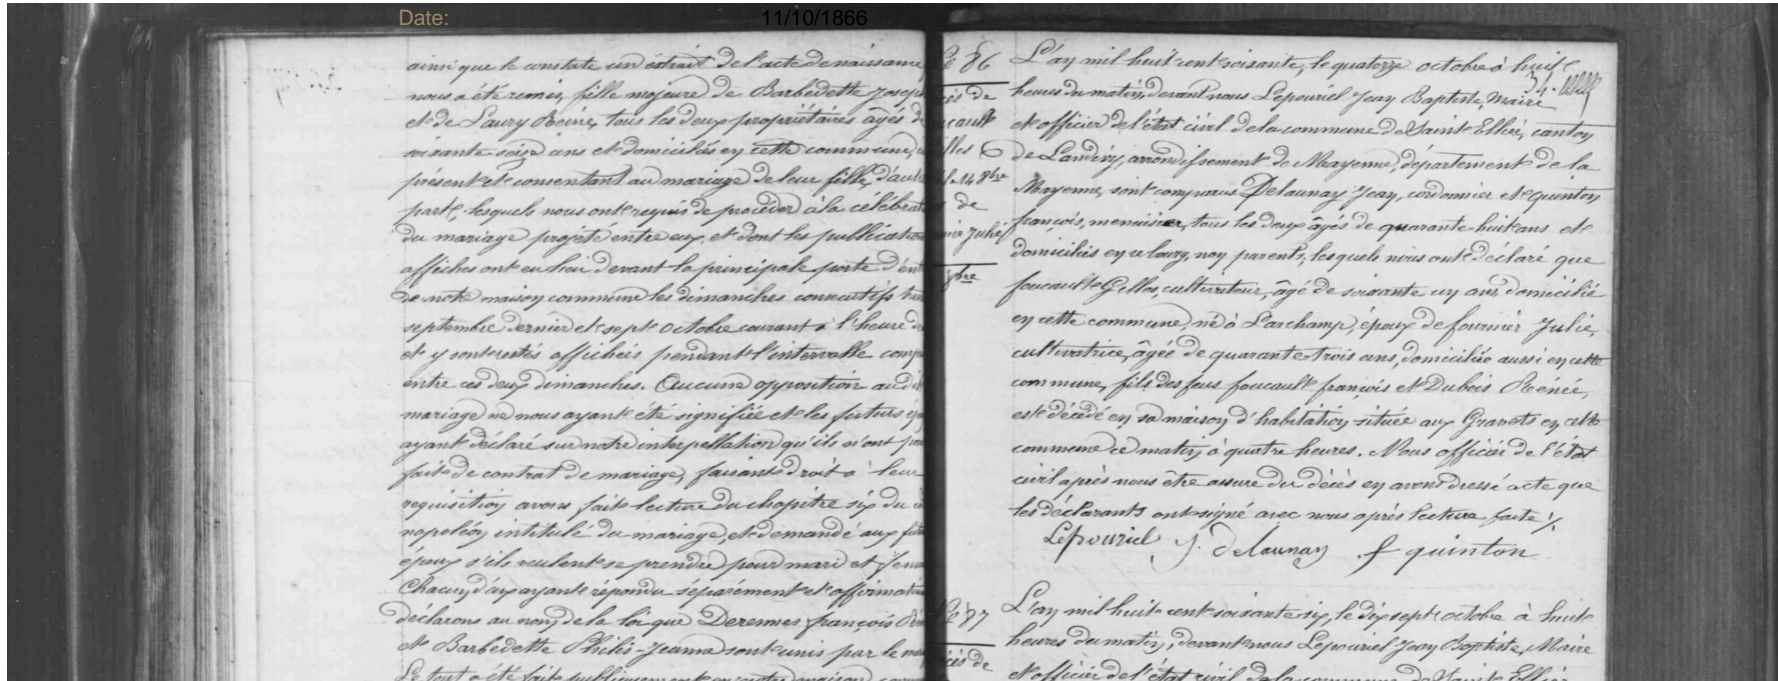 Date: 11/10/1866
ainsi que le constate un extrait de l'acte de naissance
nous a été remis, fille majeure de Barbedette Joseph
et de Laury Reine, tous les deux propriétaires âgés de
soixante seize ans et domiciliés en cette commune,
présent et consentant au mariage de leur fille, d'autre
part, lesquels nous ont requis de procéder à la célébrat
du mariage projeté entre eux, et dont les publications
affiches ont eu lieu devant la principale porte d'ent
de notre maison commune les dimanches consécutifs
septembre dernier et sept octobre courant à l'heure de
et y sont restés affichés pendant l'intervalle comp
entre ces deux dimanches. Aucune opposition au dit
mariage ne nous ayant été signifiée et les futurs ép
ayant déclaré sur notre interpellation qu'ils n'ont pas
fait de contrat de mariage, faisant droit à leur
requisition avons fait lecture du chapitre six du
napoléon intitulé du mariage, et demandé aux fut
époux s'ils veulent se prendre pour mari et femme
Chacun d'eux ayant répondu séparément et affirmativ
déclarons au nom de la loi que Derennes françois
et Barbedette Philis-Jeanne sont unis par le ma
Le tout a été fait publiquement en notre maison comm
Le 86
cès de
ucault
illes
le 14 8bre
x de
nier Julie
9bre
L'an mil huit cent soixante, le quatorze octobre à huit
34.
heures du matin, devant nous Lepouriel Jean Baptiste, Maire
et officier de l'état civil de la commune de Saint Ellier, canton
de Landivy, arrondissement de Mayenne, département de la
Mayenne, sont comparus Delaunay Jean, cordonnier et quinton
françois, menuisier, tous les deux âgés de quarante-huit ans et
domiciliés en ce bourg, non parents, lesquels nous ont déclaré que
foucault Gilles, cultivateur, âgé de soixante un ans, domicilié
en cette commune, né à Larchamp, époux de fournier Julie,
cultivatrice, âgée de quarante-trois ans, domiciliée aussi en cette
commune, fils des feus foucault françois et Dubois Renée,
est décédé en sa maison d'habitation située aux Gravets en cette
commune ce matin à quatre heures. Nous officier de l'état
civil après nous être assuré du décès en avons dressé acte que
les déclarants ont signé avec nous après lecture faite ./.
Lepouriel J. Delaunay f quinton
Le 87
cès de
L'an mil huit cent soixante six, le dix sept octobre à huit
heures du matin, devant nous Lepouriel Jean Baptiste, Maire
et officier de l'état civil de la commune de Saint Ellier